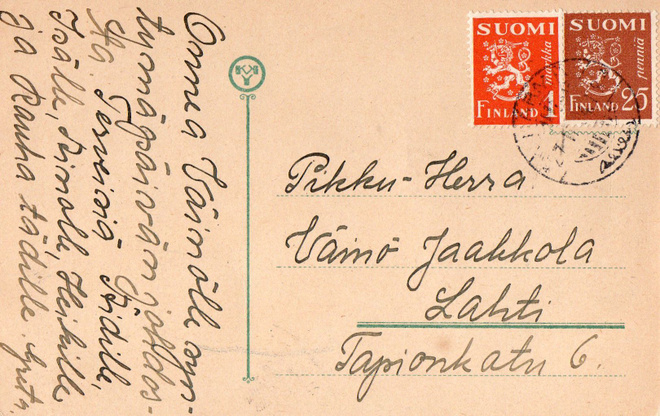 Onnea Väinölle syn-
tymäpäivän johdos-
ta. Terveisiä Äidille,
Isälle,
ja Rauha tädille
SUOMI
1 markka
FINLAND
SUOMI
25 penniä
FINLAND
Pikku-Herra
Väinö Jaakkola
Lahti
Tapionkatu 6.